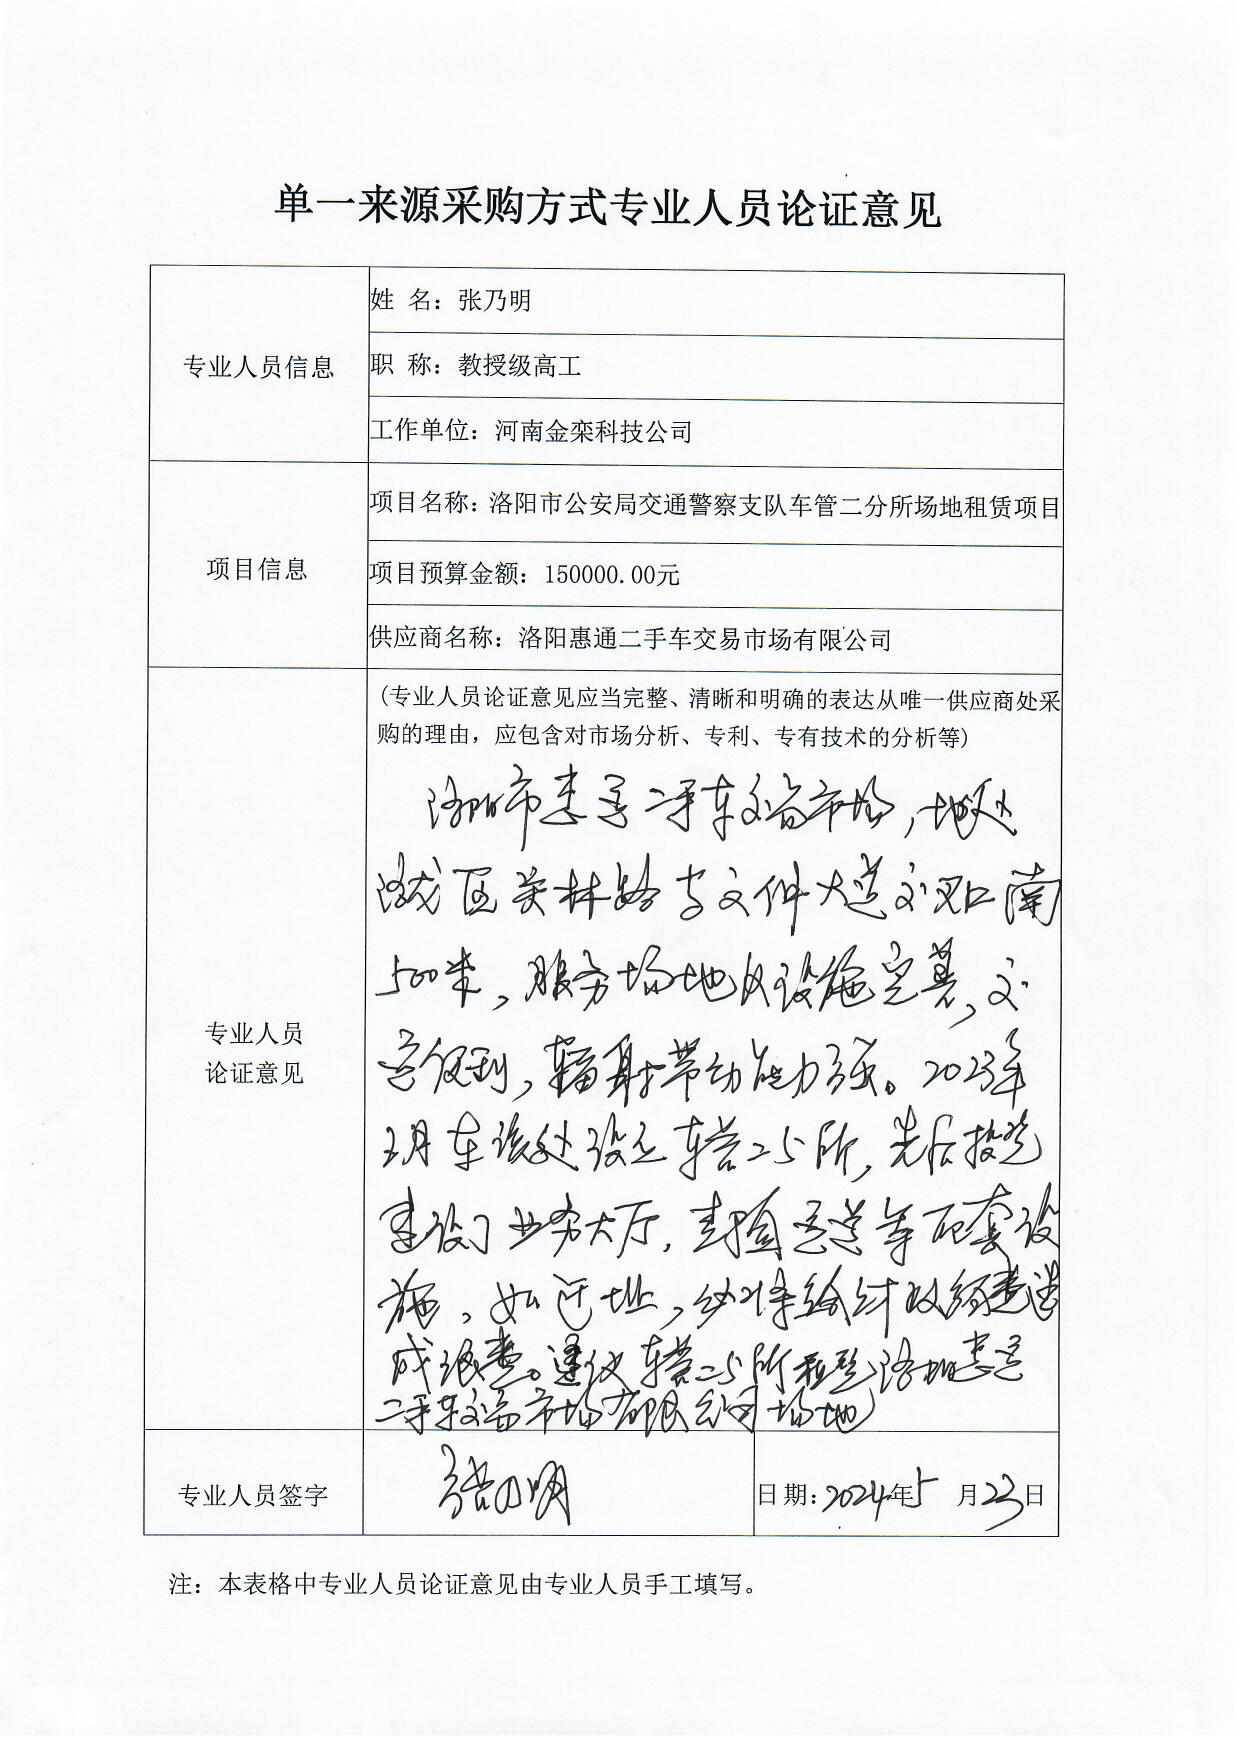 单一来源采购方式专业人员论证意见
专业人员信息
姓 名：张乃明
职 称：教授级高工
工作单位：河南金栾科技公司
项目信息
项目名称：洛阳市公安局交通警察支队车管二分所场地租赁项目
项目预算金额：150000.00元
供应商名称：洛阳惠通二手车交易市场有限公司
专业人员
论证意见
(专业人员论证意见应当完整、清晰和明确的表达从唯一供应商处采
购的理由，应包含对市场分析、专利、专有技术的分析等)
洛阳市惠通二手车交易市场，地处
洛龙区关林路与文件大道交叉口南
500米，服务场地及设施完善，交
通便利，辐射带动能力强。2023年
2月车该处设立车管二分所，先后投资
建设了业务大厅，查验通道等配套设
施，如迁址，必将给财政经费造
成浪费。建议车管二分所租赁洛阳惠通
二手车交易市场有限公司场地
专业人员签字
张乃明
日期:2024年5月23日
注：本表格中专业人员论证意见由专业人员手工填写。